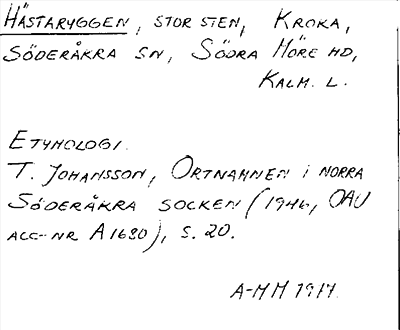 HÄSTARYGGEN, STOR STEN, KROKA,
SÖDERÅKRA SN, SÖDRA MÖRE HD,
KALM. L.
ETYMOLOGI.
T. JOHANSSON, ORTNAMNEN I NORRA
SÖDERÅKRA SOCKEN (1946, OAU
ACC-NR A1680), S. 20.
A-MM